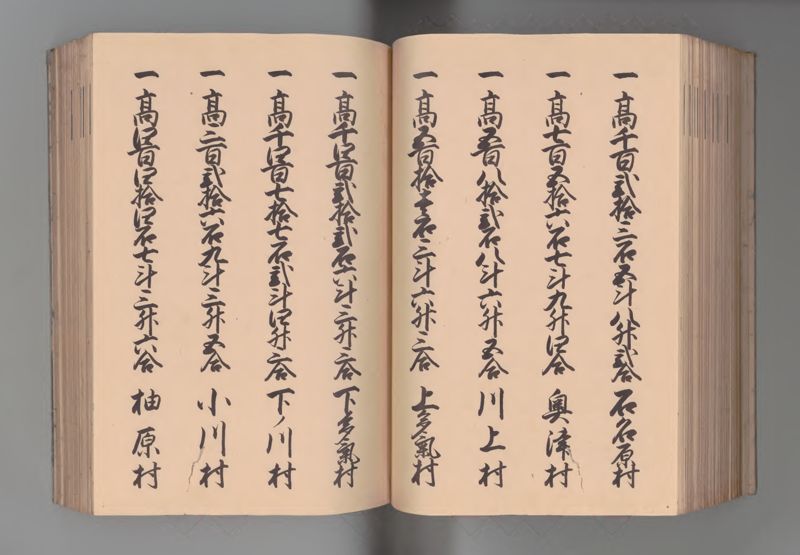 一 高千百弐拾三石五斗八升弐合 石名原村
一 高七百五拾六石七斗九升四合 奥津村
一 高五百八拾弐石八斗六升五合 川上村
一 高五百拾壱石三斗六升三合 上多氣村
一 高千四百弐拾弐石六斗三升三合 下多氣村
一 高千四百七拾七石弐斗四升三合 下ノ川村
一 高三百弐拾六石九斗三升五合 小川村
一 高四百四拾四石七斗三升六合 柚原村